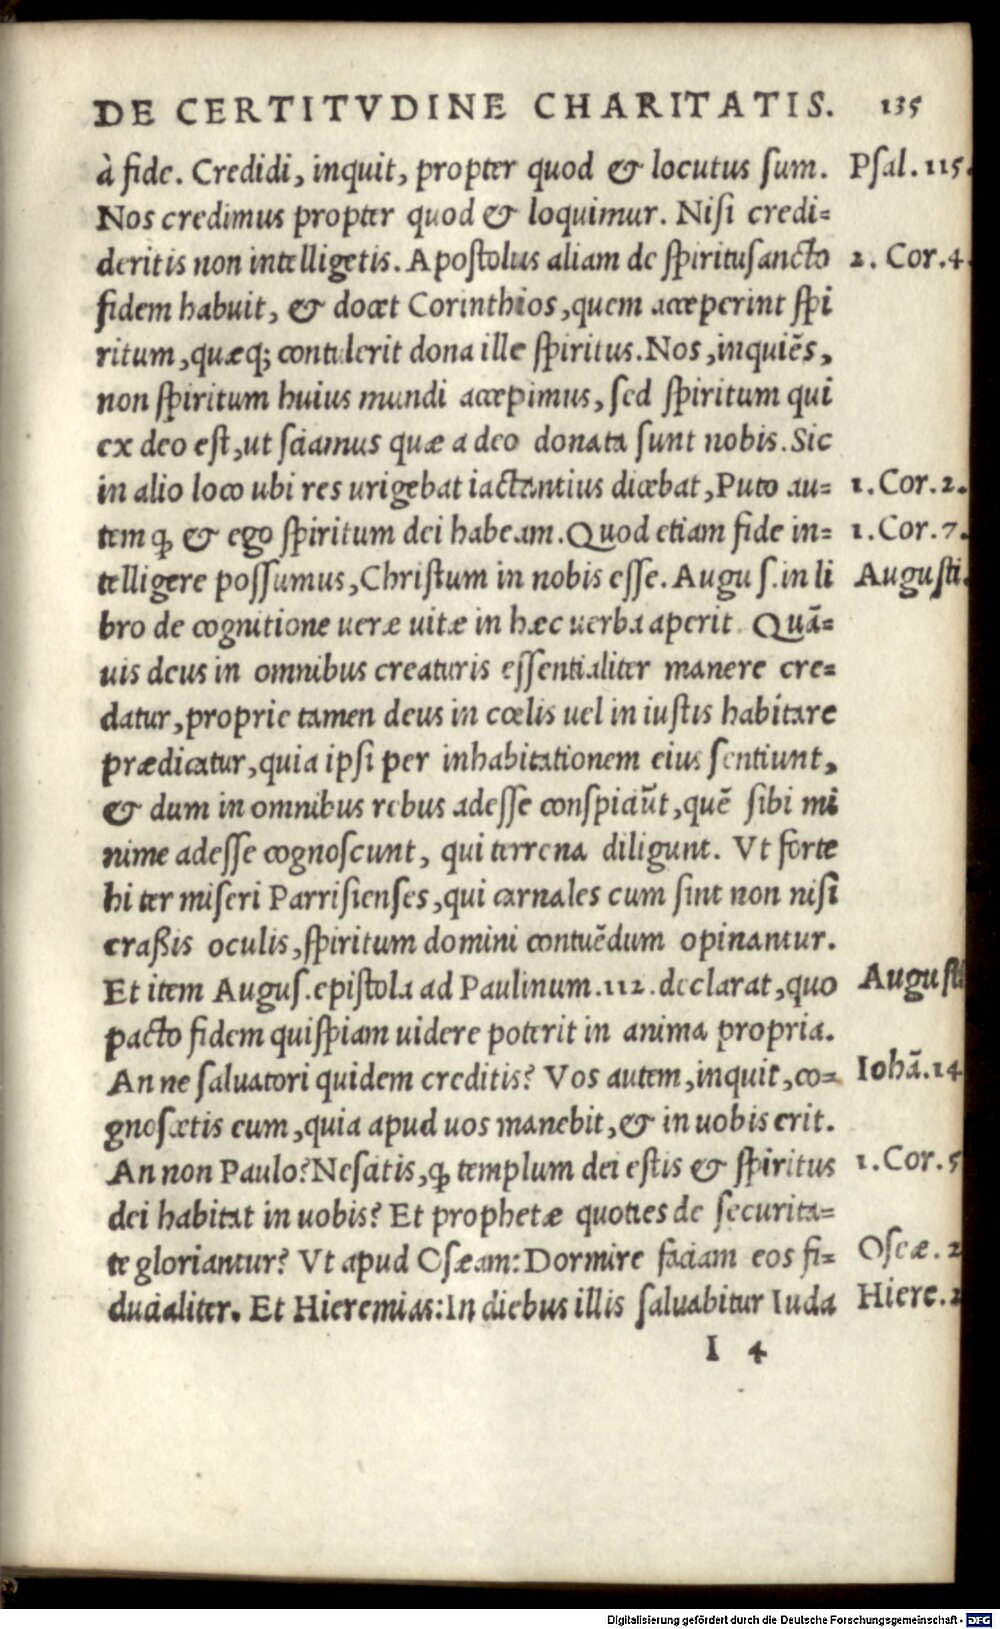 DE CERTITVDINE CHARITATIS. 135
à fide. Credidi, inquit, propter quod & locutus sum. Psal. 115.
Nos credimus propter quod & loquimur. Nisi credi=
deritis non intelligetis. Apostolus aliam de spiritusancto 2. Cor. 4.
fidem habuit, & docet Corinthios, quem acceperint spi
ritum, quæq; contulerit dona ille spiritus. Nos, inquiēs,
non spiritum huius mundi accepimus, sed spiritum qui
ex deo est, ut sciamus quæ a deo donata sunt nobis. Sic
in alio loco ubi res urigebat iactantius dicebat, Puto au= 1. Cor. 2.
tem ꝙ & ego spiritum dei habeam. Quod etiam fide in= 1. Cor. 7.
telligere possumus, Christum in nobis esse. Augus. in li Augusti.
bro de cognitione ueræ uitæ in hæc uerba aperit. Quā=
uis deus in omnibus creaturis essentialiter manere cre=
datur, proprie tamen deus in cœlis uel in iustis habitare
prædicatur, quia ipsi per inhabitationem eius sentiunt,
& dum in omnibus rebus adesse conspiciūt, quē sibi mi
nime adesse cognoscunt, qui terrena diligunt. Vt forte
hi ter miseri Parrisienses, qui carnales cum sint non nisi
craßis oculis, spiritum domini contuēdum opinantur.
Et item Augus. epistola ad Paulinum. 112. declarat, quo Augusti
pacto fidem quispiam uidere poterit in anima propria.
An ne saluatori quidem creditis? Vos autem, inquit, co= Iohā. 14
gnoscetis eum, quia apud uos manebit, & in uobis erit.
An non Paulo? Nescitis, ꝙ templum dei estis & spiritus 1. Cor. 5
dei habitat in uobis? Et prophetæ quoties de securita=
te gloriantur? Vt apud Oseam: Dormire faciam eos fi= Oseæ. 2
ducialiter. Et Hieremias: In diebus illis saluabitur Iuda Hiere. 2
I 4
Digitalisierung gefördert durch die Deutsche Forschungsgemeinschaft - DFG